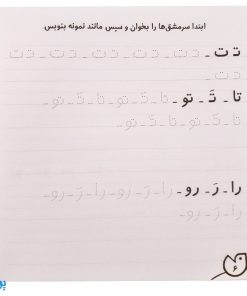 ابتدا سرمشق‌ها را بخوان و سپس مانند نمونه بنویس.
ت ت ـ ت ت ـ ت ت ـ ت ت ـ ت ت ـ ت ت
ت ت ـ
تا ـ تَ ـ تو ـ تا ـ تَ ـ تو ـ تا ـ تَ ـ تو ـ
تا ـ تَ ـ تو ـ تا ـ تَ ـ تو ـ
را ـ رَ ـ رو ـ را ـ رَ ـ رو ـ را ـ رَ ـ رو ـ
را ـ رَ ـ رو ـ را ـ رَ ـ رو
۶